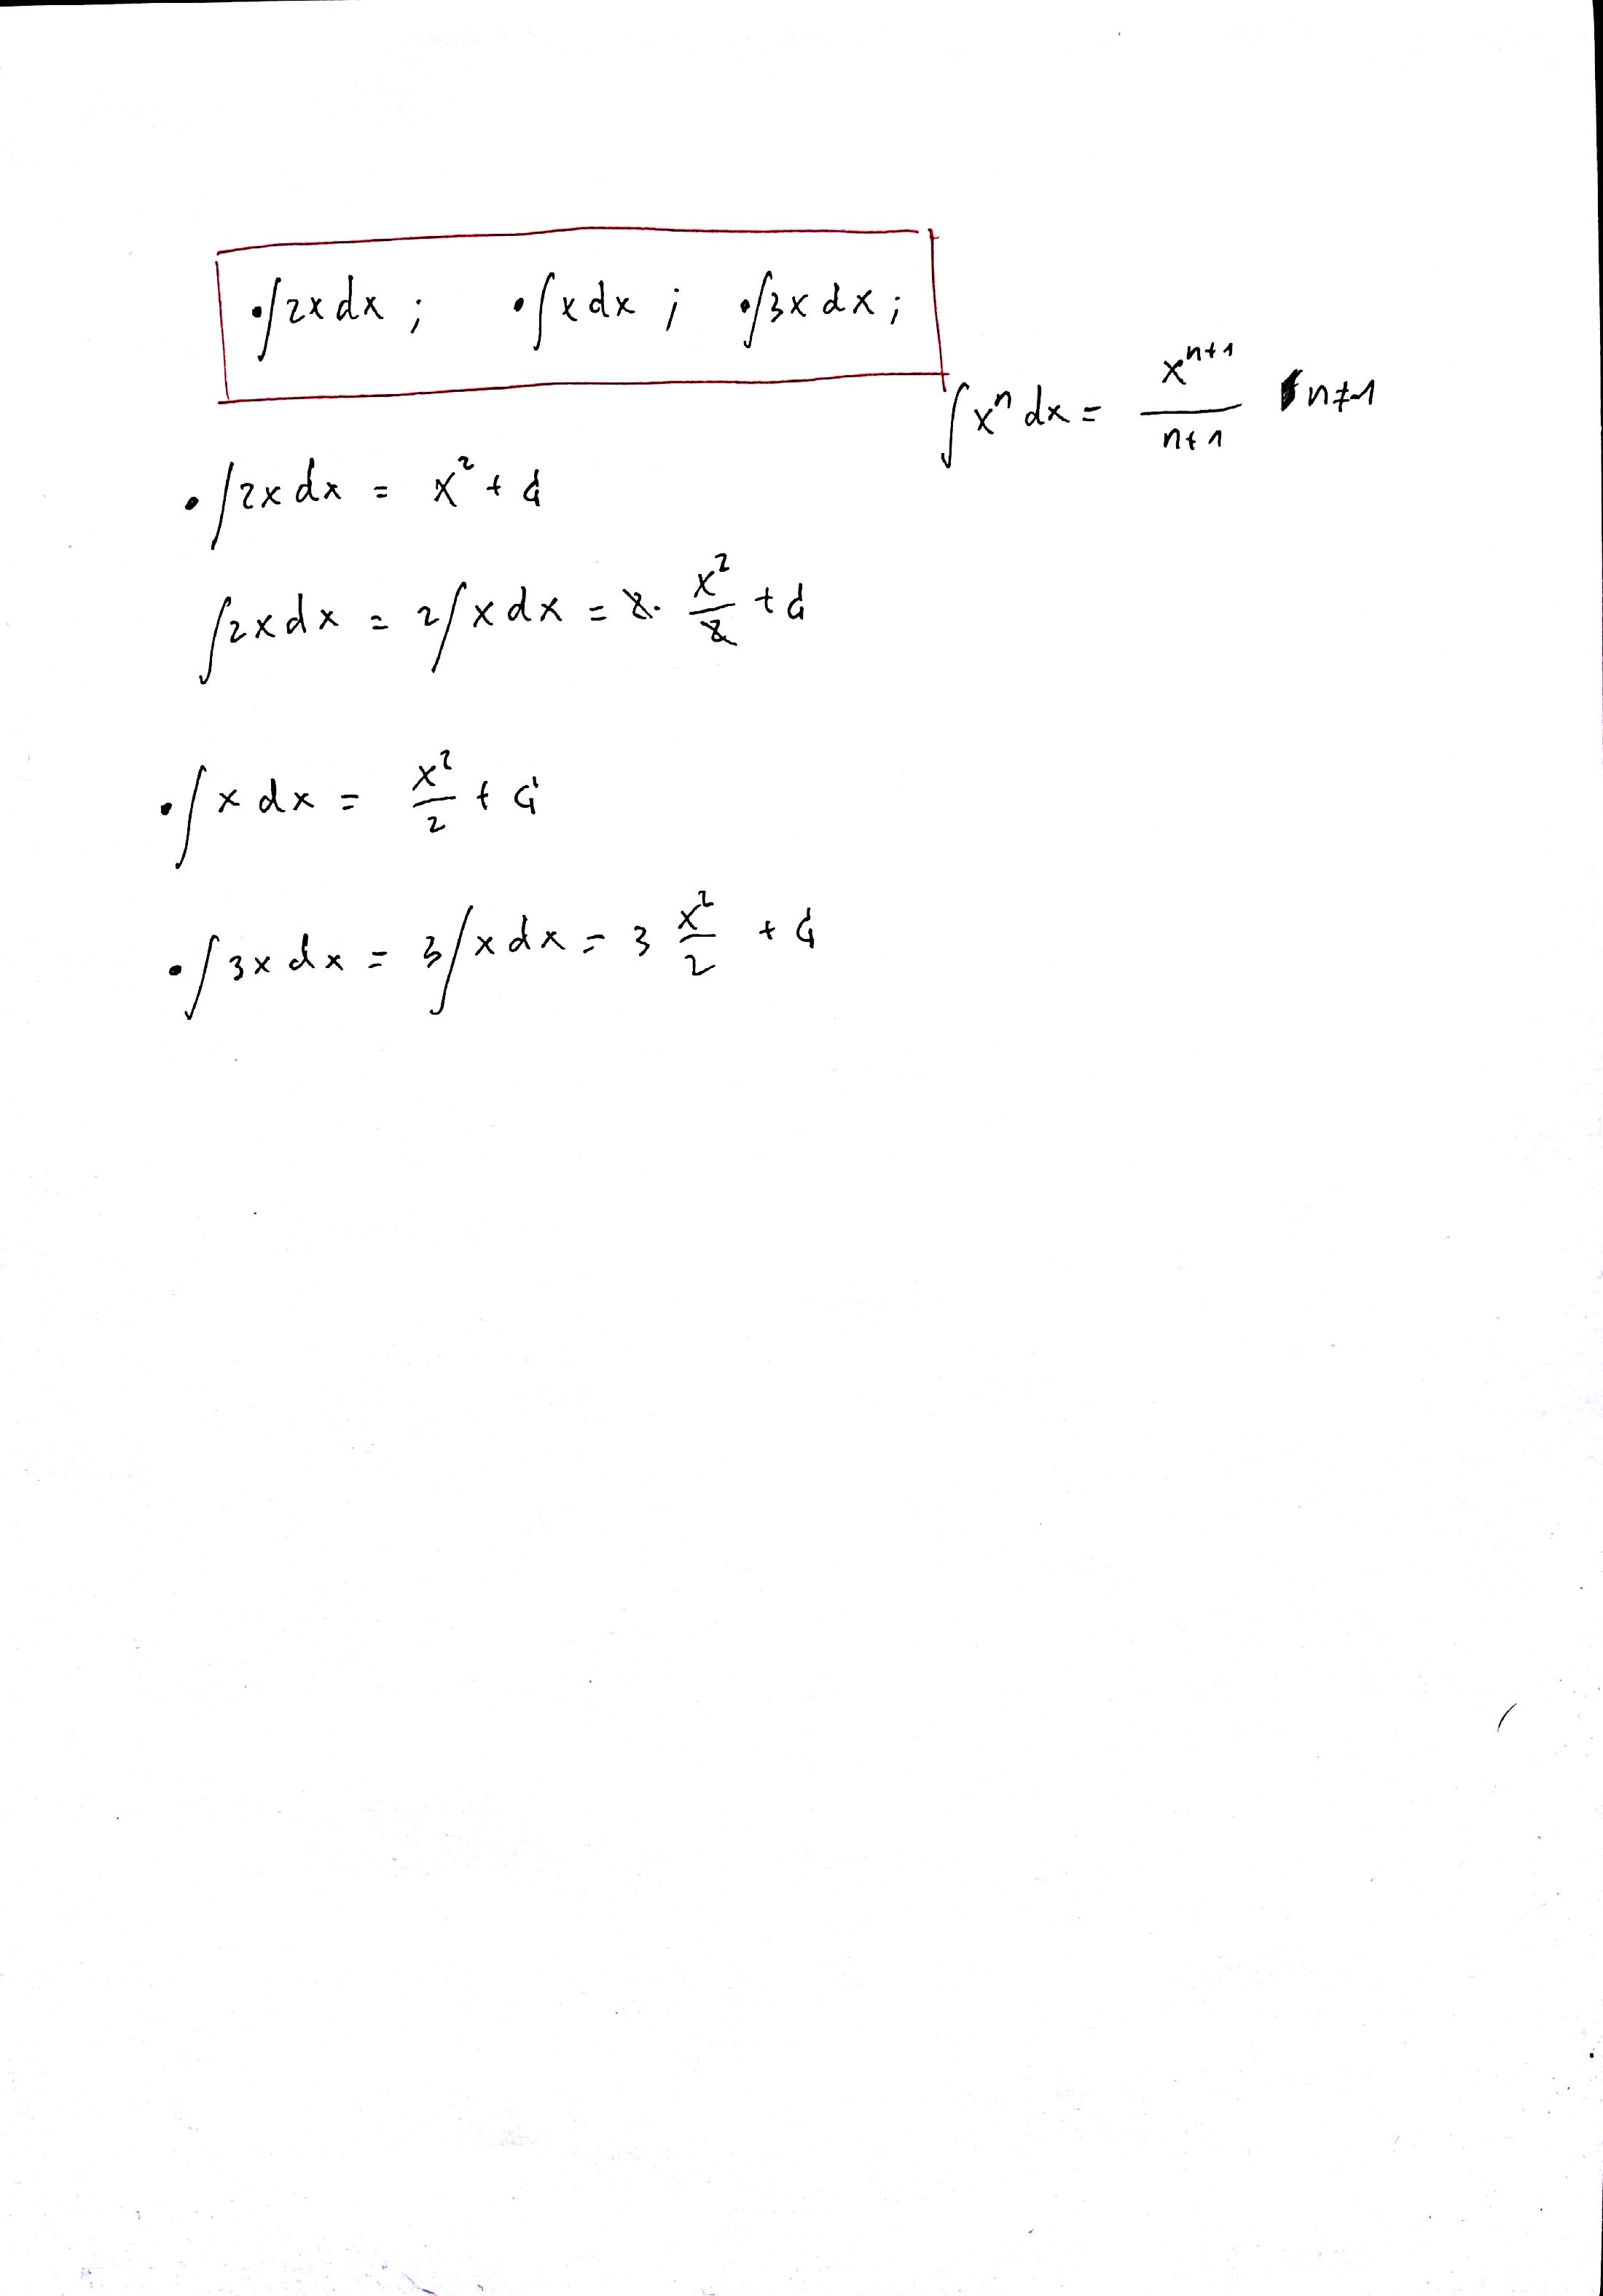 • ∫2x dx ; • ∫x dx ; • ∫3x dx ;
∫xⁿ dx = xⁿ⁺¹/(n+1) n≠-1
• ∫2x dx = x² + C
∫2x dx = 2∫x dx = 2 · x²/2 + C
• ∫x dx = x²/2 + C
• ∫3x dx = 3∫x dx = 3 x²/2 + C